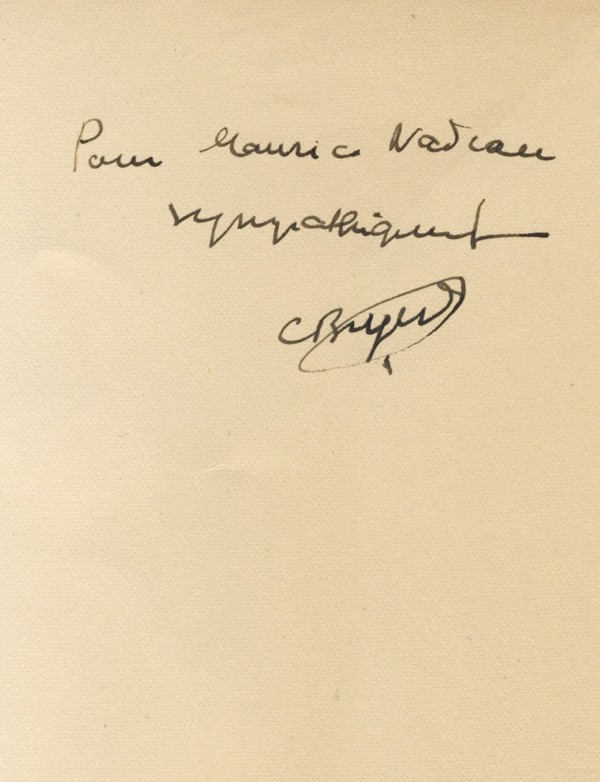 Pour Maurice Nadeau
sympathiquement
CBryen